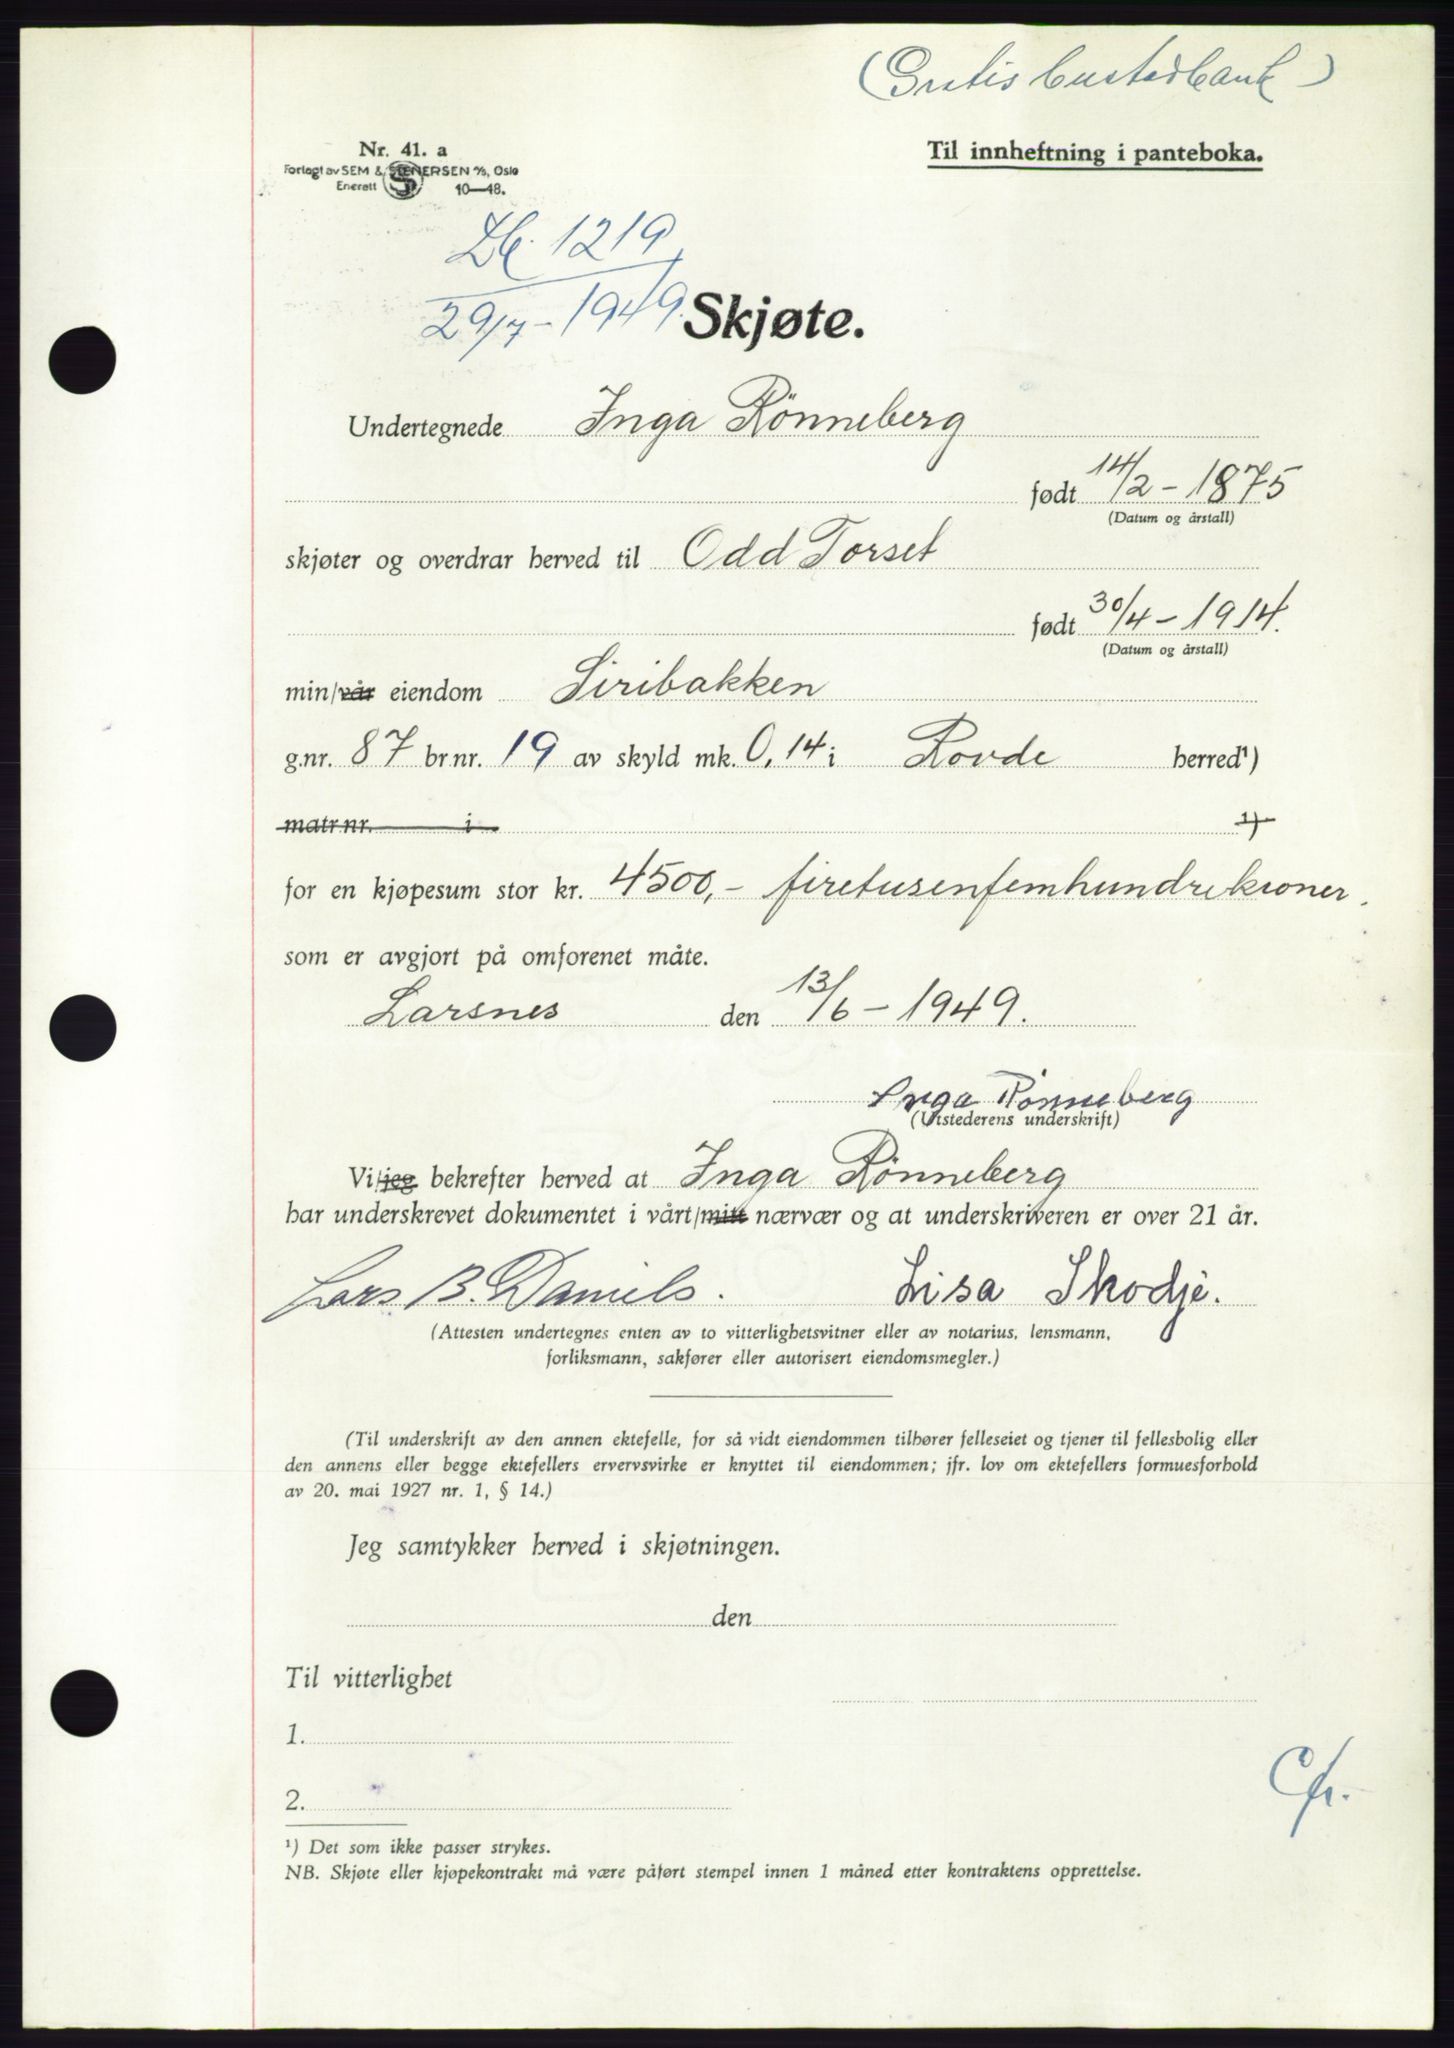 (Gratis Bustadbank)
Nr. 41. a
Forlagt av SEM & STENERSEN A/S, Oslo
Enerett 10—48.
Til innheftning i panteboka.
Db. 1219
29/7 - 1949.
Skjøte.
Undertegnede Inga Rönneberg
født 14/2 - 1875
(Datum og årstall)
skjøter og overdrar herved til Odd Torset
født 30/4 - 1914.
(Datum og årstall)
min/vår eiendom Siribakken
g.nr. 87 br.nr. 19 av skyld mk. 0,14 i Rovde herred¹)
matr.nr. i ¹)
for en kjøpesum stor kr. 4500,- firetusenfemhundrekroner.
som er avgjort på omforenet måte.
Larsnes den 13/6 - 1949.
Inga Rönneberg
(Utstederens underskrift)
Vi/jeg bekrefter herved at Inga Rönneberg
har underskrevet dokumentet i vårt/mitt nærvær og at underskriveren er over 21 år.
Lars B. Daniels. Lisa Skodje.
(Attesten undertegnes enten av to vitterlighetsvitner eller av notarius, lensmann,
forliksmann, sakfører eller autorisert eiendomsmegler.)
(Til underskrift av den annen ektefelle, for så vidt eiendommen tilhører felleseiet og tjener til fellesbolig eller
den annens eller begge ektefellers ervervsvirke er knyttet til eiendommen; jfr. lov om ektefellers formuesforhold
av 20. mai 1927 nr. 1, § 14.)
Jeg samtykker herved i skjøtningen.
den
Til vitterlighet
1.
2.
Cfr.
¹) Det som ikke passer strykes.
NB. Skjøte eller kjøpekontrakt må være påført stempel innen 1 måned etter kontraktens opprettelse.